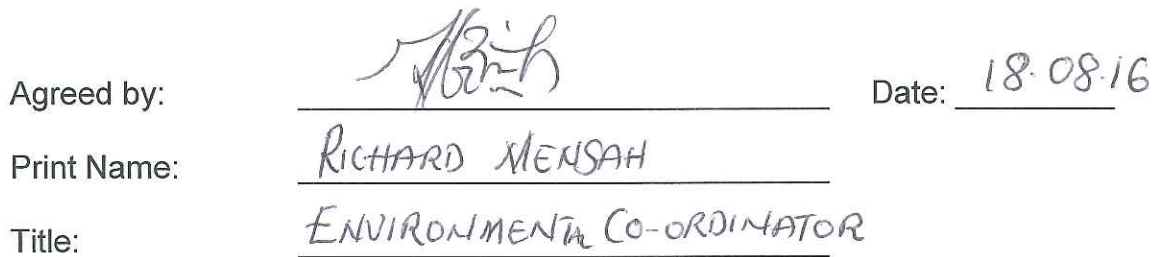 Agreed by: Date: 18.08.16
Print Name: RICHARD MENSAH
Title: ENVIRONMENTAL CO-ORDINATOR